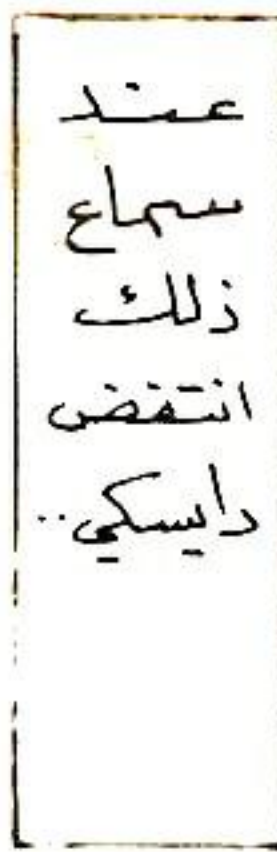 عند
سماع
ذلك
انتفض
دايسكي..